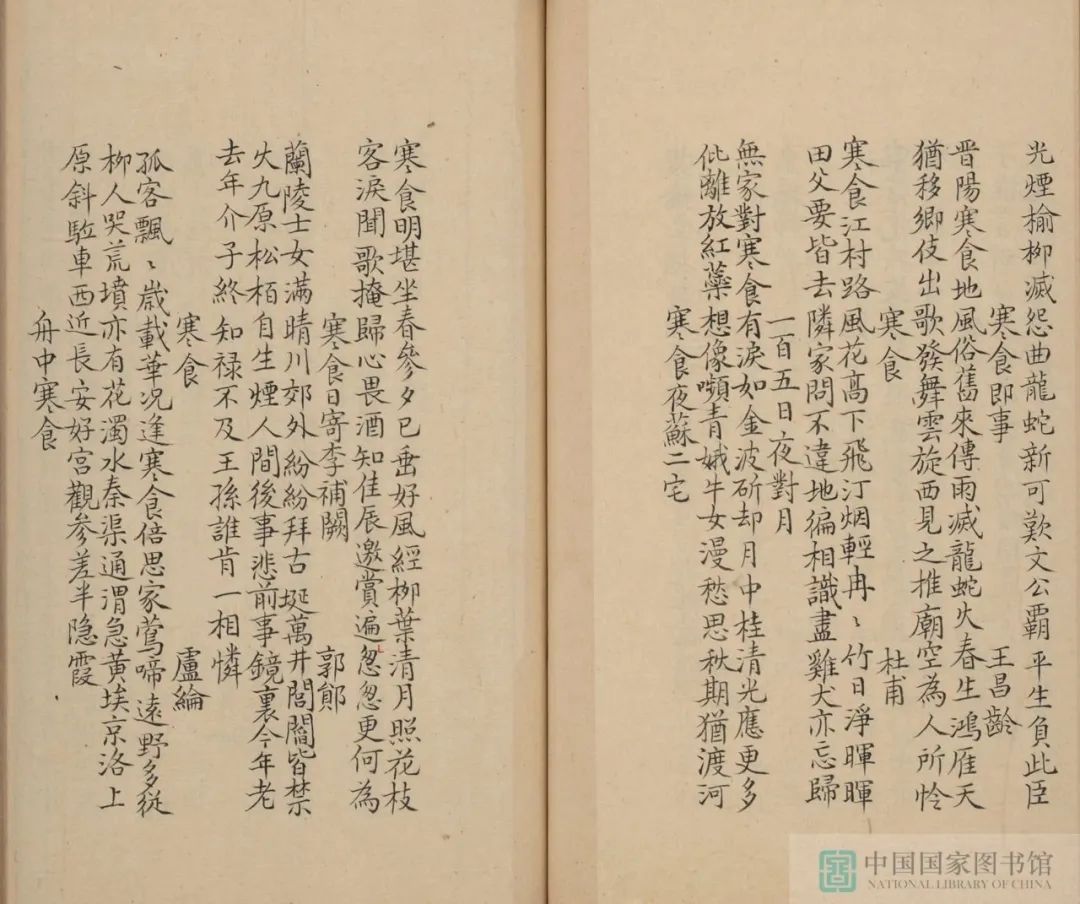 光煙榆柳滅怨曲龍蛇新可歎文公霸平生負此臣
寒食即事 王昌齡
晋陽寒食地風俗舊來傳雨滅龍蛇火春生鴻雁天
猶移鄉伎出歌發舞雲旋西見之推廟空為人所怜
寒食 杜甫
寒食江村路風花高下飛汀烟輕冉〻竹日淨暉暉
田父要皆去隣家問不違地徧相識盡雞犬亦忘歸
一百五日夜對月
無家對寒食有淚如金波斫却月中桂清光應更多
仳離放紅蘂想像嚬青娥牛女漫愁思秋期猶渡河
寒食夜蘇二宅
寒食明堪坐春參夕已垂好風經柳葉清月照花枝
客淚聞歌掩歸心畏酒知佳辰邀賞遍忽忽更何為
寒食日寄李補闕 郭鄖
蘭陵士女滿晴川郊外紛紛拜古埏萬井閭閻皆禁
火九原松栢自生煙人間後事悲前事鏡裏今年老
去年介子終知禄不及王孫誰肯一相憐
寒食 盧綸
孤客飄〻歲載華况逢寒食倍思家鶯啼遠野多從
柳人哭荒墳亦有花濁水秦渠通渭急黄埃京洛上
原斜駐車西近長安好宫觀参差半隐霞
舟中寒食
中国国家图书馆
NATIONAL LIBRARY OF CHINA